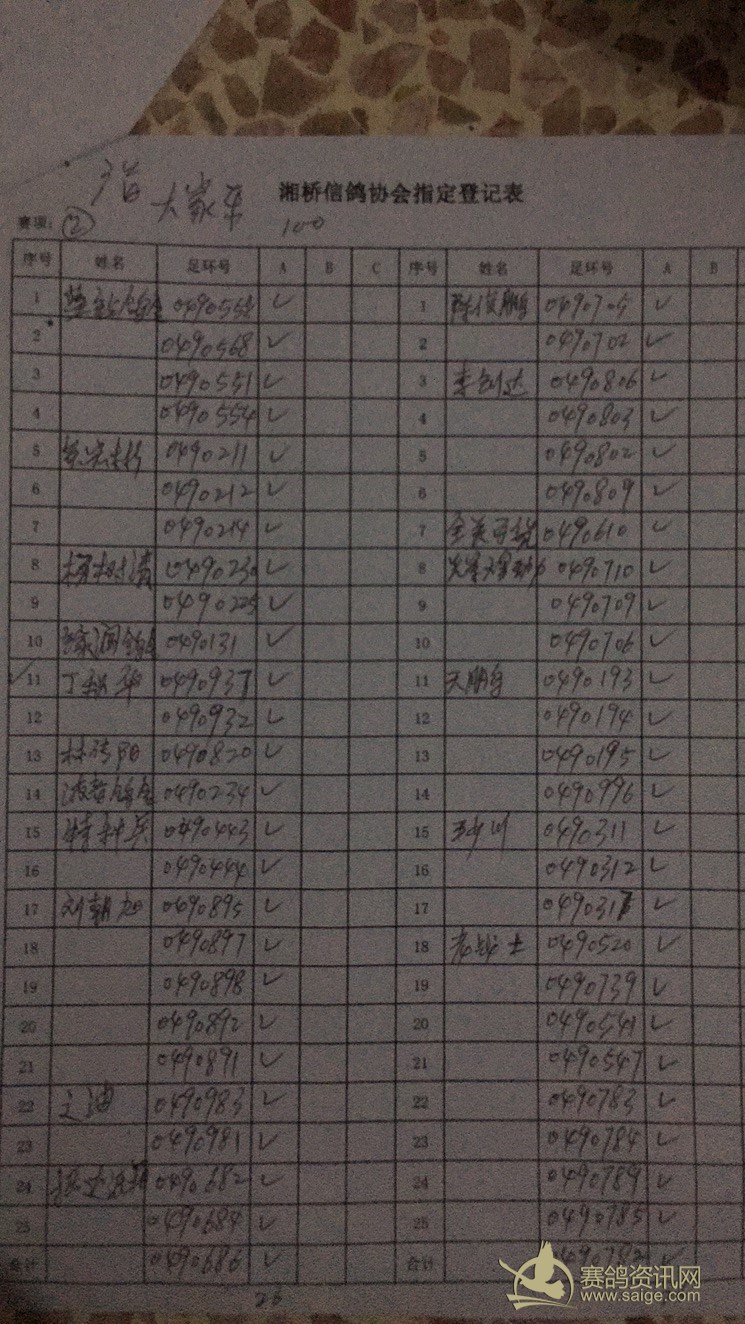 大家乐 湘桥信鸽协会指定登记表
赛项: ② 100
序号 姓名 足环号 A B C 序号 姓名 足环号 A B
1 0490558 ✓ 1 陈俊鹏 0490705 ✓
2 0490568 ✓ 2 0490702 ✓
3 0490551 ✓ 3 李创达 0490806 ✓
4 0490554 ✓ 4 0490803 ✓
5 0490211 ✓ 5 0490802 ✓
6 0490212 ✓ 6 0490809 ✓
7 0490214 ✓ 7 0490610 ✓
8 杨树清 0490230 ✓ 8 0490710 ✓
9 0490225 ✓ 9 0490709 ✓
10 0490131 ✓ 10 0490706 ✓
✓ 11 0490937 ✓ 11 天鹏 0490193 ✓
12 0490932 ✓ 12 0490194 ✓
13 0490820 ✓ 13 0490195 ✓
14 0490234 ✓ 14 0490996 ✓
15 特种兵 0490443 ✓ 15 0490311 ✓
16 0490444 ✓ 16 0490312 ✓
17 刘朝旭 0490895 ✓ 17 049031 ✓
18 0490897 ✓ 18 老战士 0490520 ✓
19 0490898 ✓ 19 0490739 ✓
20 0490892 ✓ 20 0490541 ✓
21 0490891 ✓ 21 0490547 ✓
22 0490983 ✓ 22 0490783 ✓
23 0490981 ✓ 23 0490784 ✓
24 0490682 ✓ 24 0490789 ✓
25 0490684 ✓ 25 0490785 ✓
合计 0490686 ✓ 合计 0490782 ✓
26
赛鸽资讯网
www.saige.com